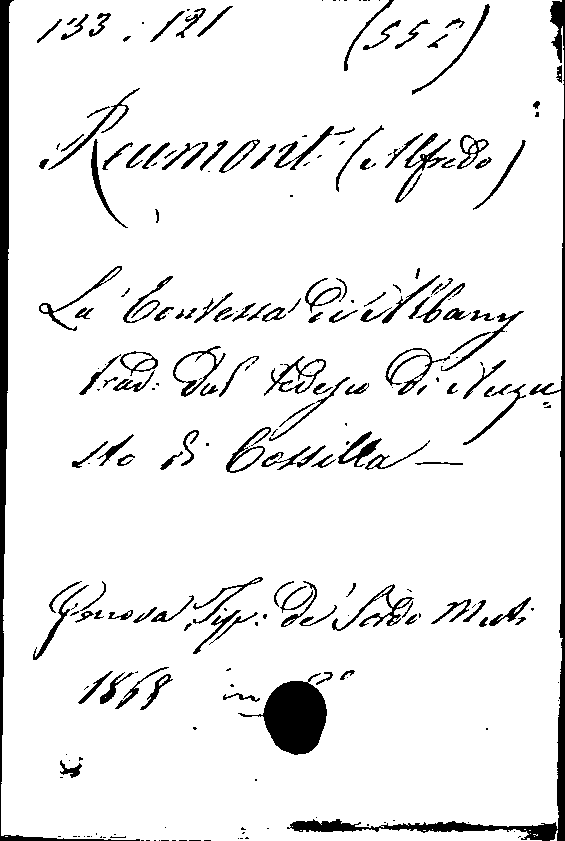 133. 121 (552)
Reumont (Alfredo)
La Contessa di Albany
trad: dal tedesco di Augu=
sto di Cossilla —
Genova Tip: de' Sordo Muti
1868 in 8º